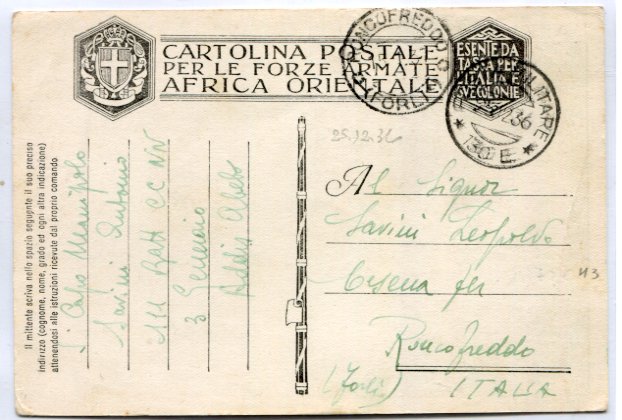 CARTOLINA POSTALE
PER LE FORZE ARMATE
AFRICA ORIENTALE
ESENTE DA
TASSA PER
L'ITALIA E
SUE COLONIE
RONCOFREDDO
(FORLI)
POSTA MILITARE
36
130 E
25.12.36
Il mittente scriva nello spazio seguente il suo preciso
indirizzo (cognome, nome, grado ed ogni altra indicazione)
attenendosi alle istruzioni ricevute dal proprio comando
Capo Manipolo
Savini Antonio
III Batt CC NN
3 Gennaio
Addis Abeba
Al Signor
Savini Leopoldo
Cesena per
Roncofreddo
(Forlì) ITALIA